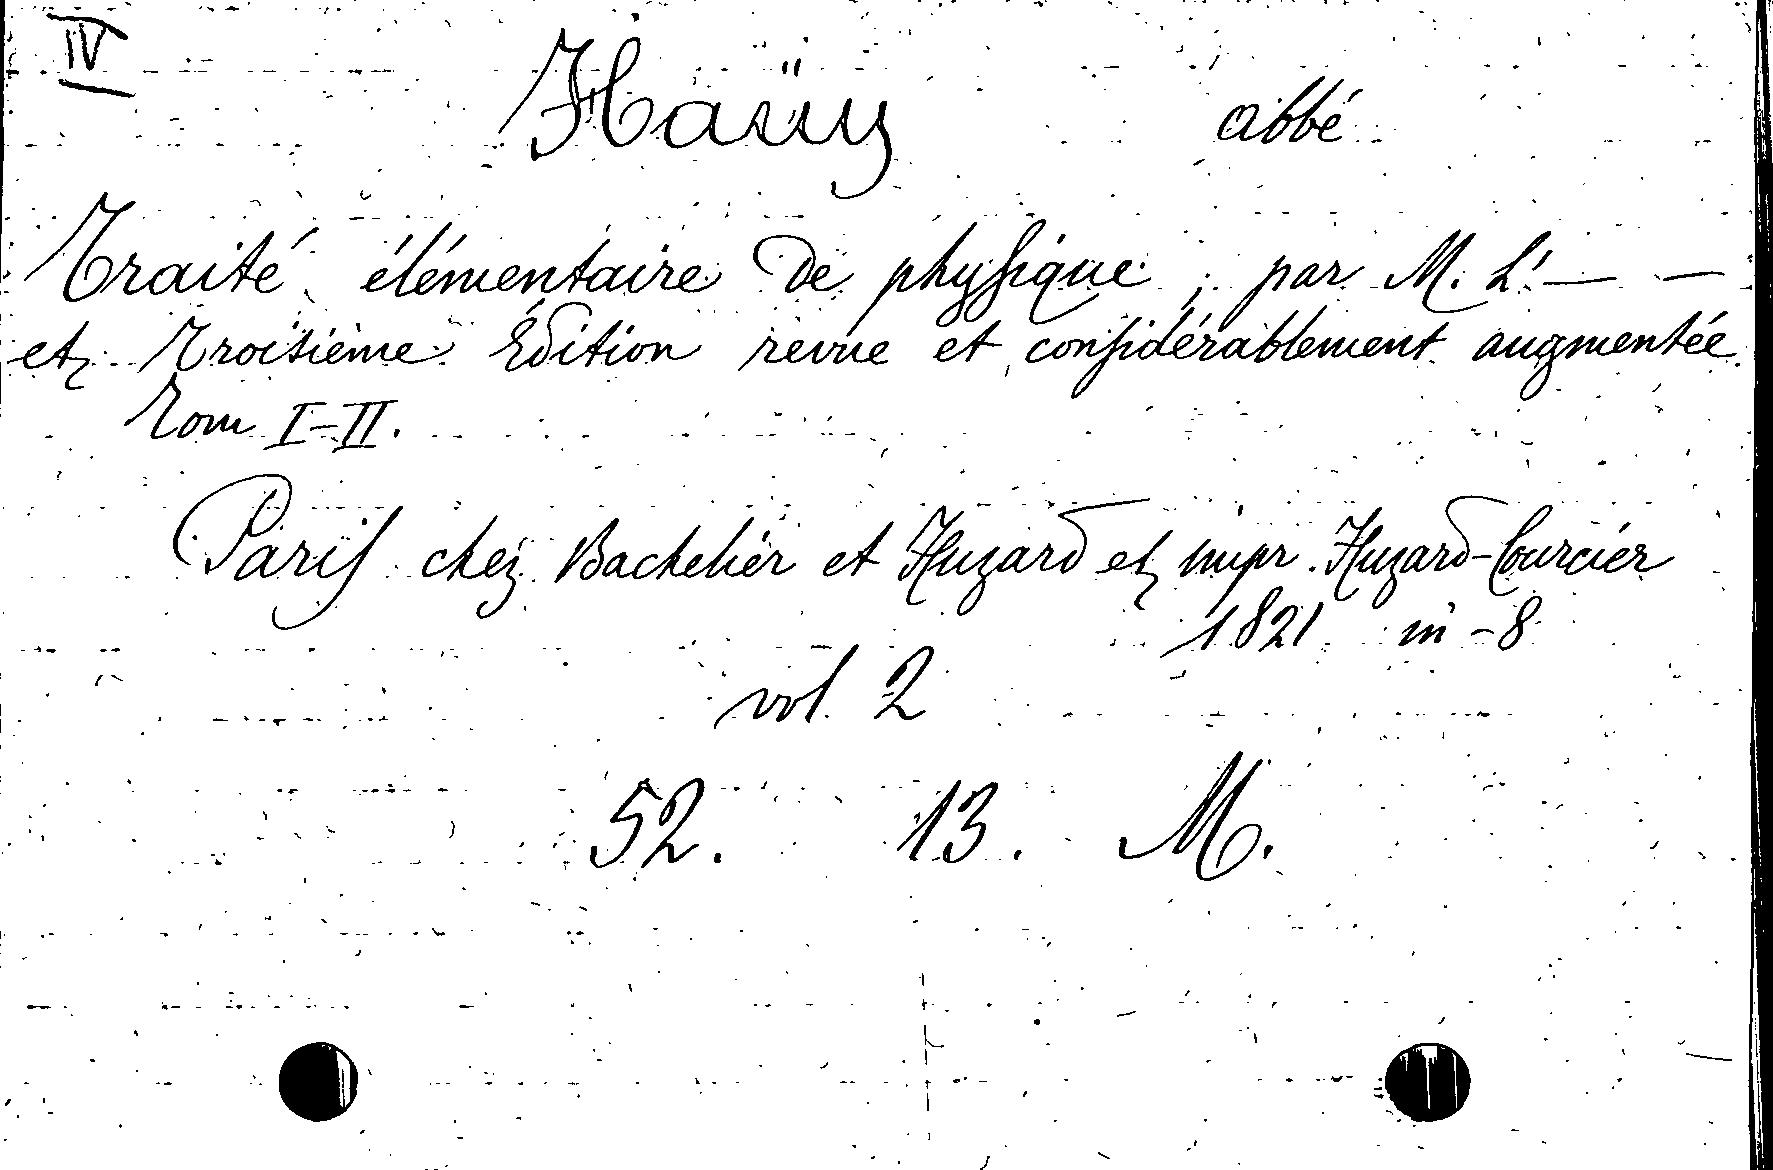 IV
Haüy abbé
Traité élémentaire de physique, par M. L'— —
etz Troisième Édition revue et considérablement augmentée
Tom I-II.
Paris chez Bachelier et Huzard etz impr. Huzard-Courcier
1821 in-8
vol. 2
52. 13. M.